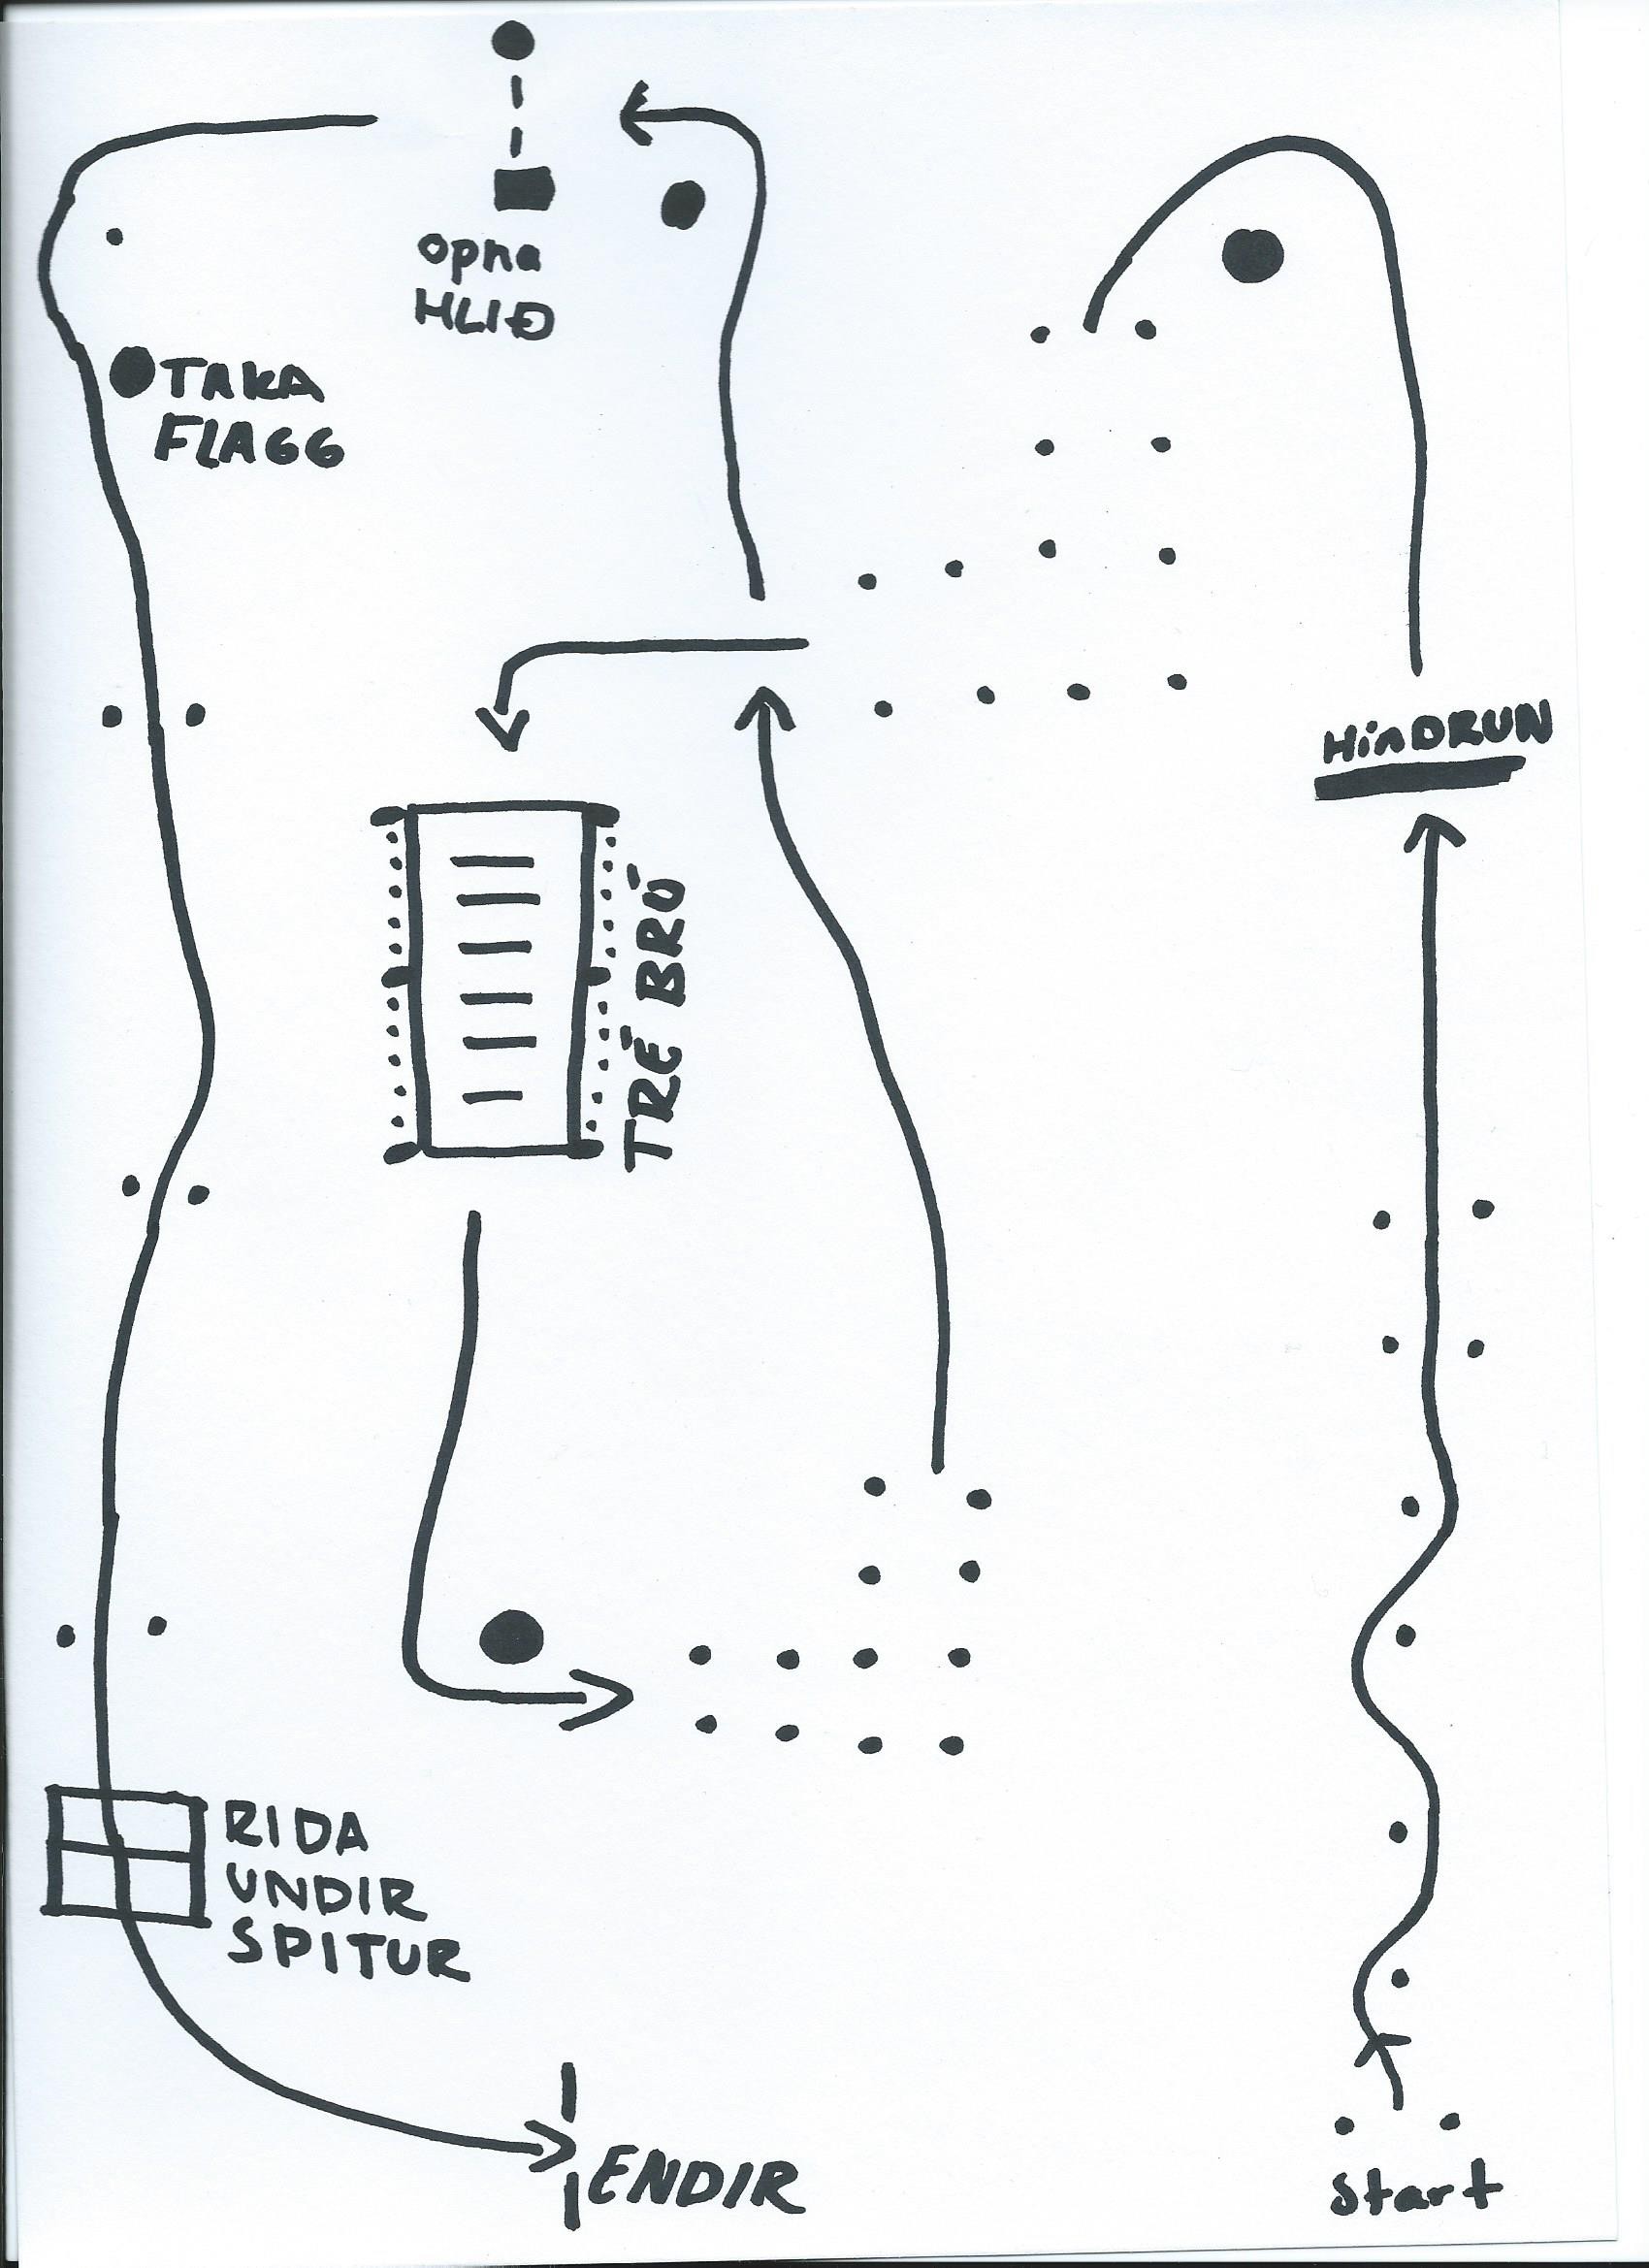 opna
HLIÐ
TAKA
FLAGG
HinDRUN
TRÉ BRÚ
RIDA
UNDIR
SPITUR
ENDIR
Start